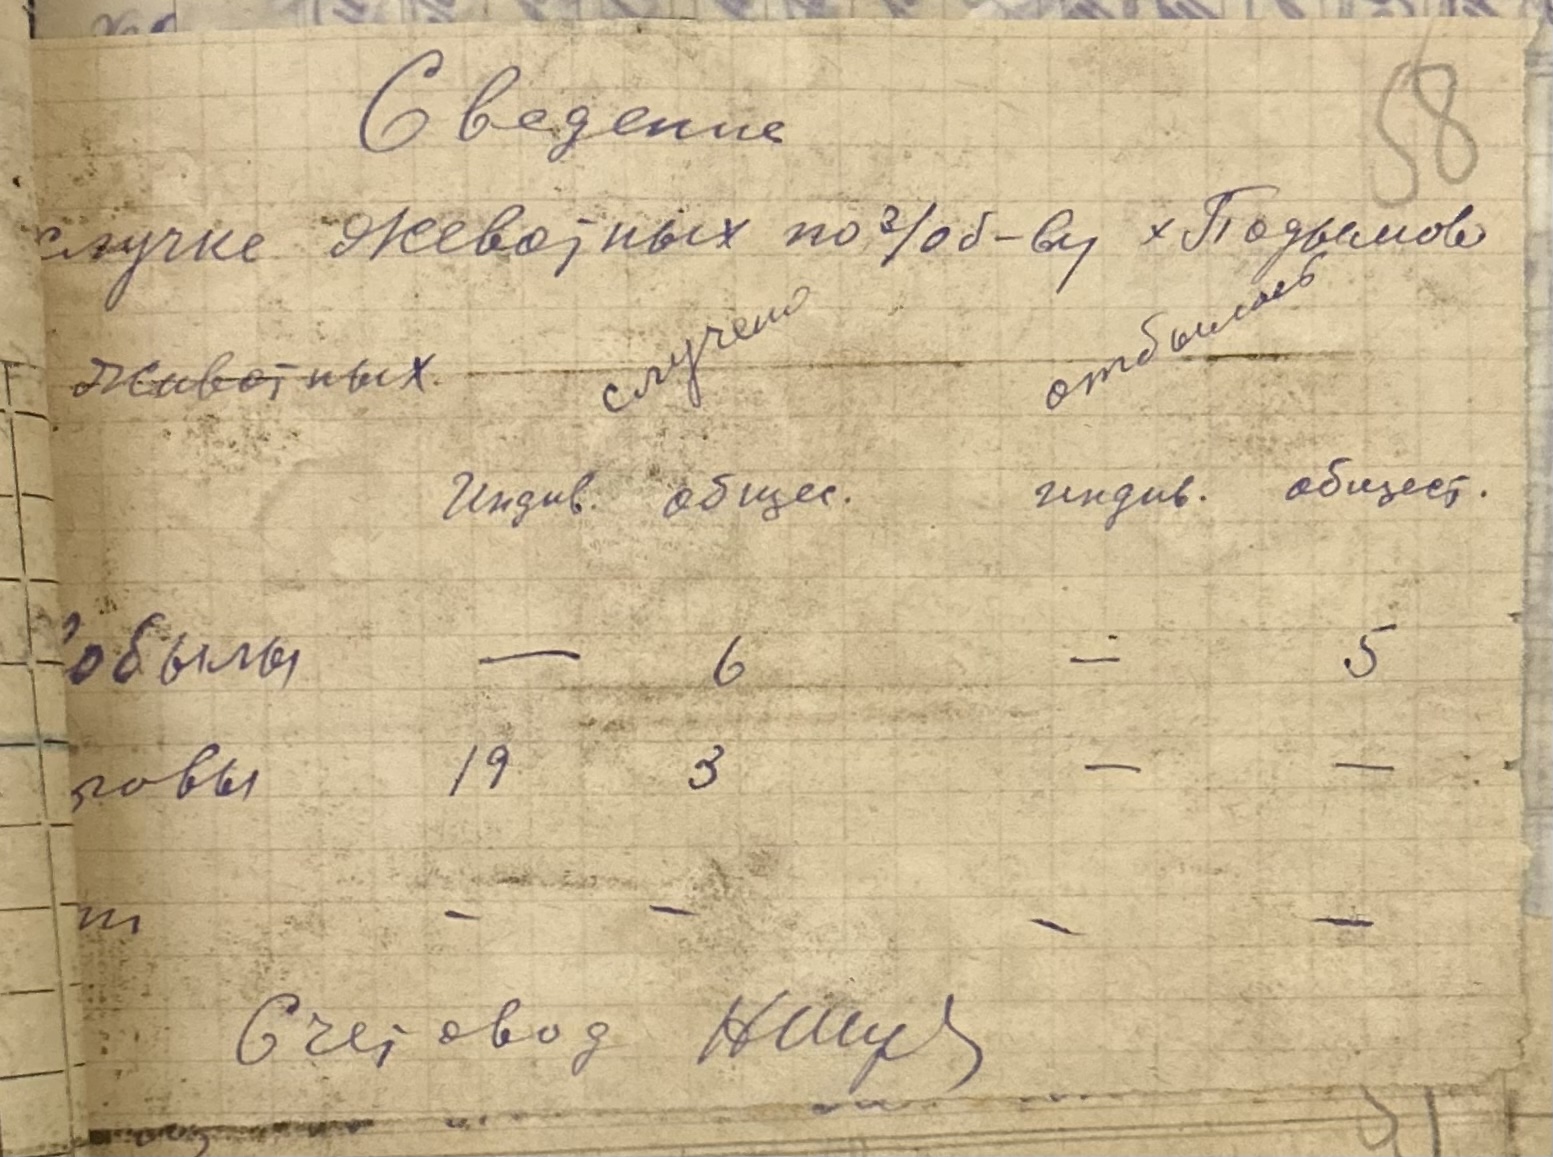 58
Сведение
случке жевотных по з/об-ву х Подымово
животных случено отбылось
Индив. общес. индив. общест.
кобылы — 6 — 5
ровы 19 3 — —
— — — —
Счетовод